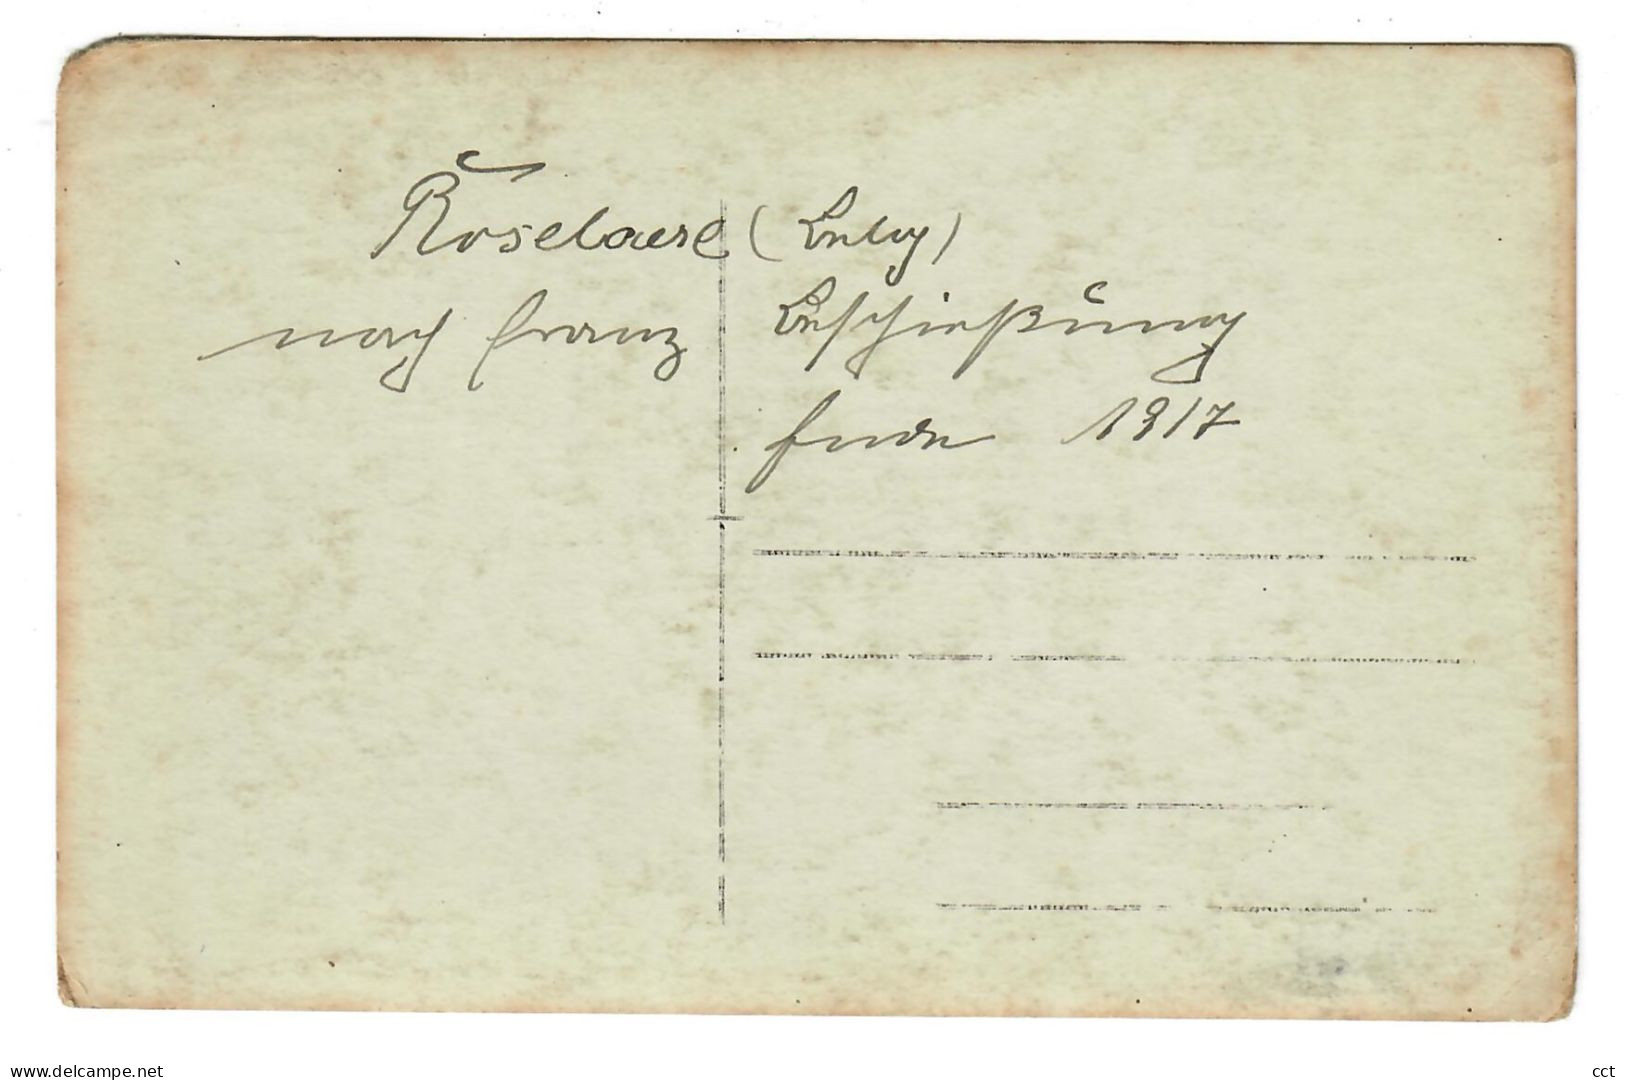 Roselaere (Belg)
nach franz Beschießung
Ende 1917
www.delcampe.net
cct